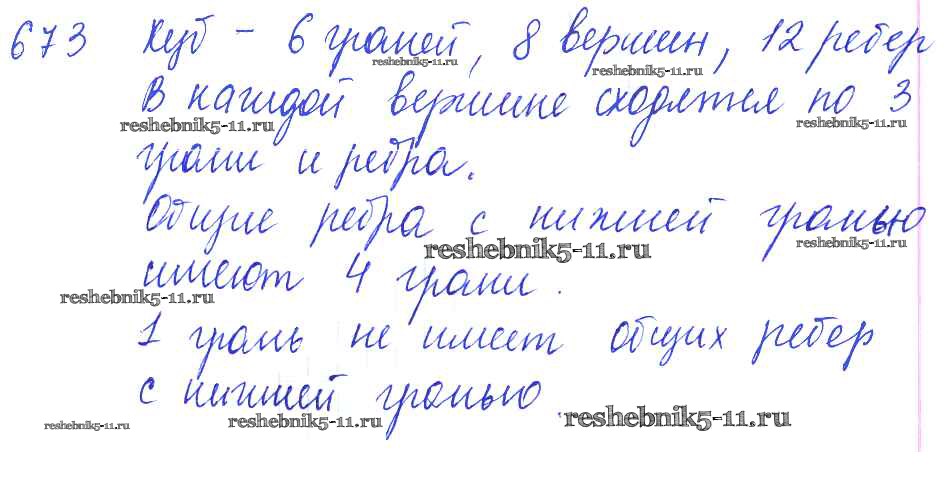 673 Куб - 6 граней, 8 вершин, 12 ребер
reshebnik5-11.ru reshebnik5-11.ru
В каждой вершине сходятся по 3
reshebnik5-11.ru reshebnik5-11.ru
грани и ребра.
Общие ребра с нижней гранью
reshebnik5-11.ru reshebnik5-11.ru
имеют 4 грани.
reshebnik5-11.ru
1 грань не имеет общих ребер
с нижней гранью
reshebnik5-11.ru reshebnik5-11.ru reshebnik5-11.ru